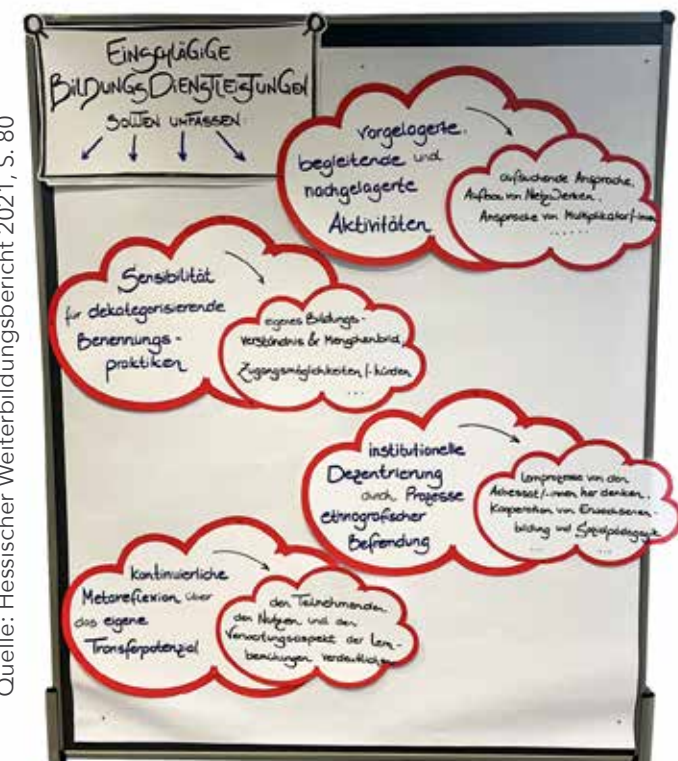 Quelle: Hessischer Weiterbildungsbericht 2021, S. 80
EINSCHLÄGIGE
BILDUNGSDIENSTLEISTUNGEN
SOLLTEN UMFASSEN:
vorgelagerte,
begleitende und
nachgelagerte
Aktivitäten
aufsuchende Ansprache,
Aufbau von Netzwerken,
Ansprache von Multiplikator/-innen
......
Sensibilität
für dekategorisierende
Benennungs-
praktiken
eigenes Bildungs-
verständnis & Menschenbild,
Zugangsmöglichkeiten/-hürden
...
institutionelle
Dezentrierung
durch Prozesse
ethnografischer
Befremdung
Lernprozesse von den
Adressat/-innen her denken,
Kooperation von Erwachsenen-
bildung und Sozialpädagogik
...
kontinuierliche
Metareflexion über
das eigene
Transferpotenzial
den Teilnehmenden
den Nutzen und den
Verwertungsaspekt der Lern-
bemühungen verdeutlichen